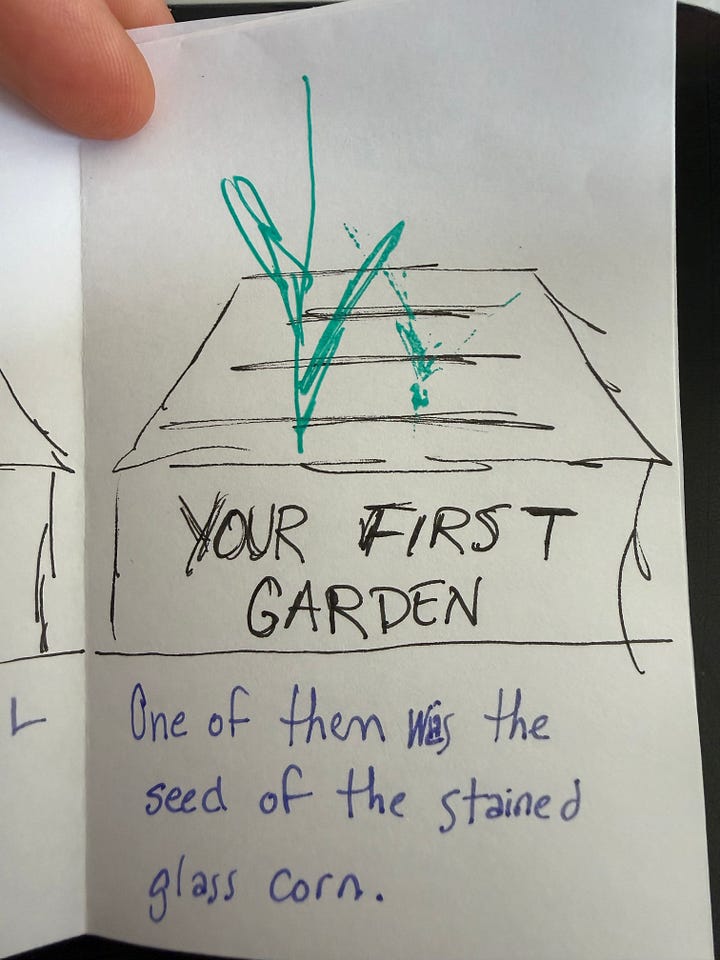 YOUR FIRST
GARDEN
L
One of them was the
seed of the stained
glass corn.